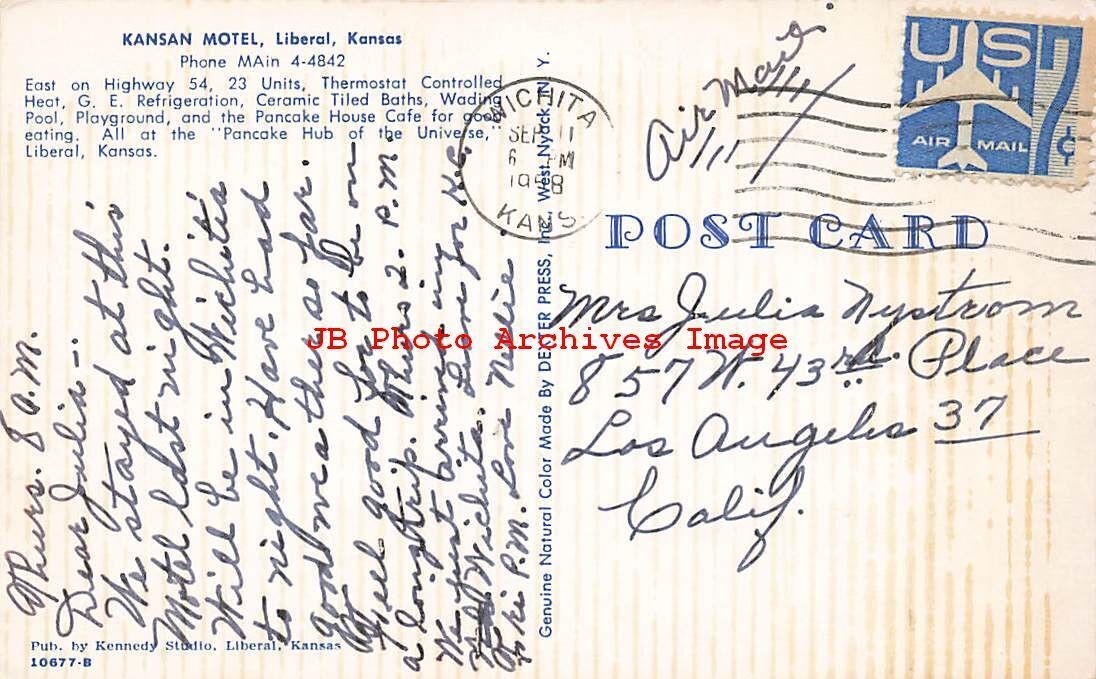 KANSAN MOTEL, Liberal, Kansas
Phone MAin 4-4842
East on Highway 54, 23 Units, Thermostat Controlled
Heat, G. E. Refrigeration, Ceramic Tiled Baths, Wading
Pool, Playground, and the Pancake House Cafe for good
eating. All at the "Pancake Hub of the Universe,"
Liberal, Kansas.
Thurs. 8 a.m.
Dear Julia —.
We stayed at this
Motel last night.
Will be in Wichita
to night. Have had
good weather so far.
Feel good for to be on
a long trip. Thurs 2. P.M.
We just arrived in
Wichita. Leave for K.C.
Fri P.M. Love Nellie.
Pub. by Kennedy Studio, Liberal, Kansas
10677-B
Genuine Natural Color Made By DEXTER PRESS, Inc. West Nyack, N. Y.
WICHITA
SEP 11
6 PM
1958
KANS.
Air Mail
US
7¢
AIR MAIL
POST CARD
Mrs Julia Nystrom
857 W. 43rd. Place
Los Angeles 37
Calif.
JB Photo Archives Image